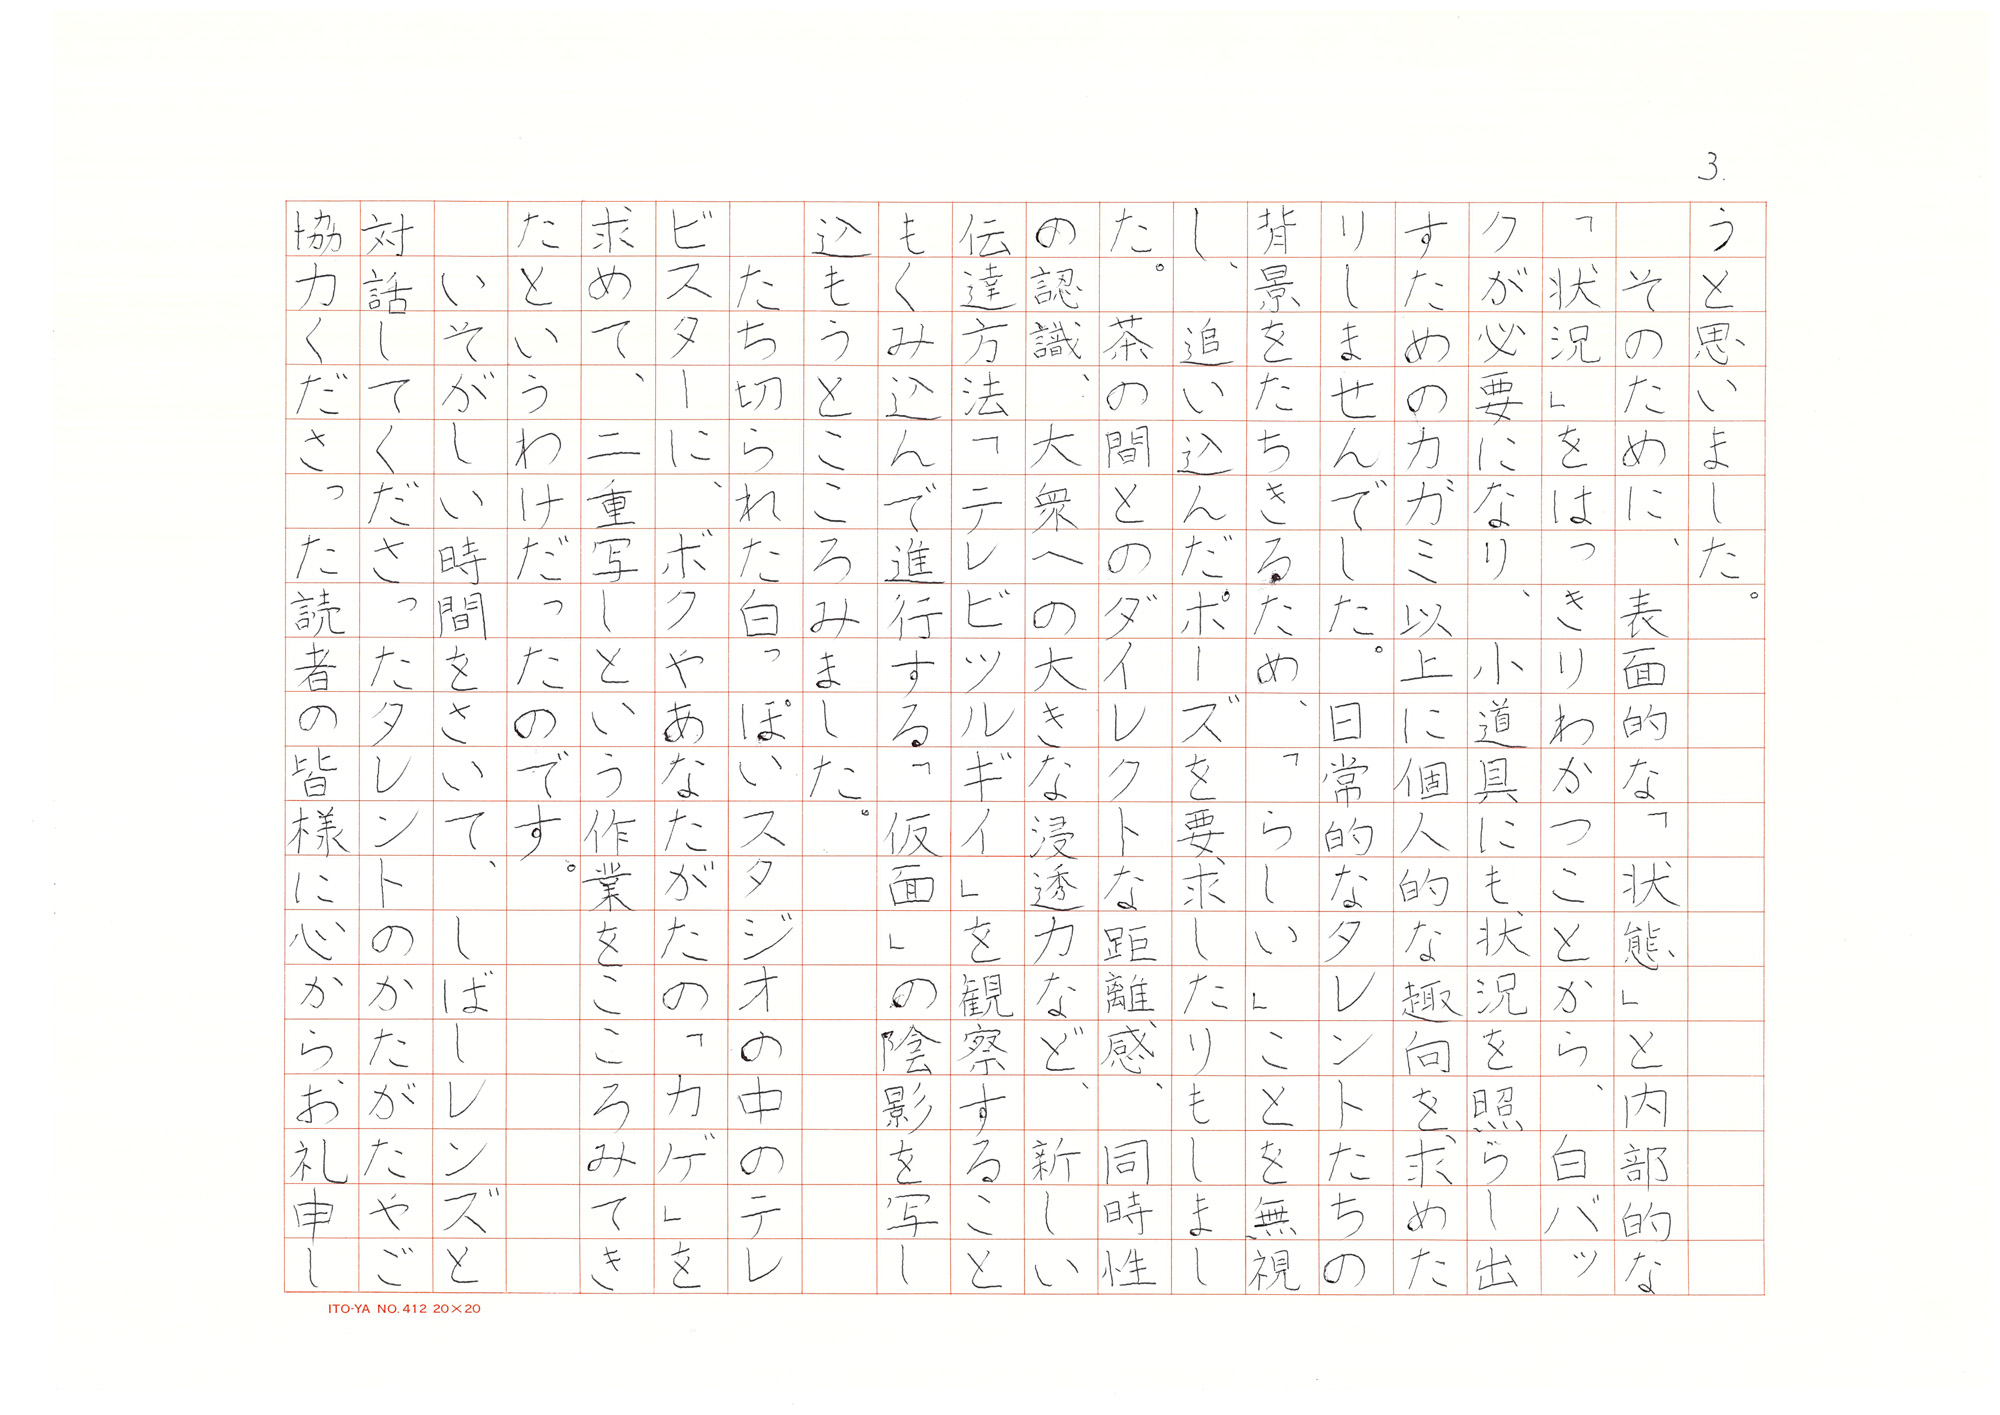 3.
うと思いました。
そのために、表面的な「状態」と内部的な
「状況」をはっきりわかつことから、白バッ
クが必要になり、小道具にも状況を照らし出
すためのカガミ以上に個人的な趣向を求めた
りしませんでした。日常的なタレントたちの
背景をたちきるため、「らしい」ことを無視
し、追い込んだポーズを要求したりもしまし
た。茶の間とのダイレクトな距離感、同時性
の認識、大衆への大きな浸透力など、新しい
伝達方法「テレビツルギイ」を観察すること
もくみ込んで進行する「仮面」の陰影を写し
込もうとこころみました。
たち切られた白っぽいスタジオの中のテレ
ビスターに、ボクやあなたがたの「カゲ」を
求めて、二重写しという作業をこころみてき
たというわけだったのです。
いそがしい時間をさいて、しばしレンズと
対話してくださったタレントのかたがたやご
協力くださった読者の皆様に心からお礼申し
ITO-YA NO.412 20×20